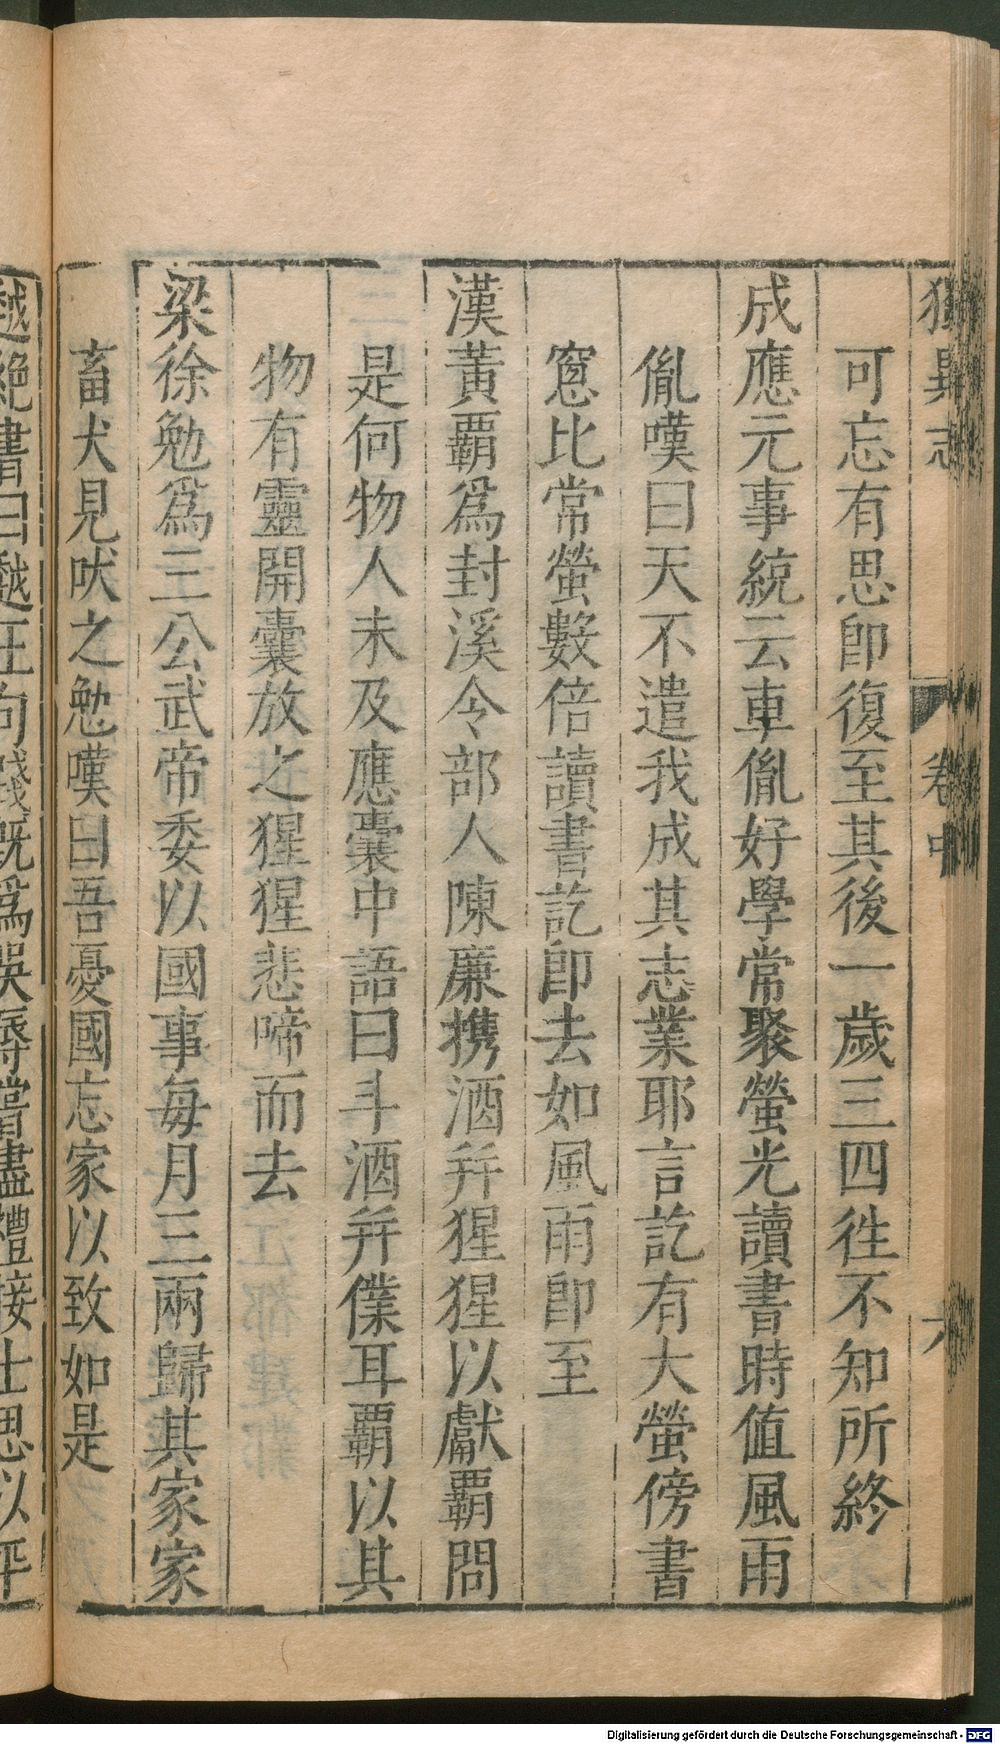 獨異志 卷中
可忘有思卽復至其後一歲三四徃不知所終
成應元事統云車胤好學常聚螢光讀書時值風雨
胤嘆曰天不遣我成其志業耶言訖有大螢傍書
窻比常螢數倍讀書訖卽去如風雨卽至
漢黃霸爲封溪令部人陳廉携酒幷猩猩以獻霸問
是何物人未及應囊中語曰斗酒幷僕耳霸以其
物有靈開囊放之猩猩悲啼而去
梁徐勉爲三公武帝委以國事每月三兩歸其家家
畜犬見吠之勉嘆曰吾憂國忘家以致如是
越絶書曰越王句踐旣爲吳辱嘗盡禮接士思以平
Digitalisierung gefördert durch die Deutsche Forschungsgemeinschaft - DFG